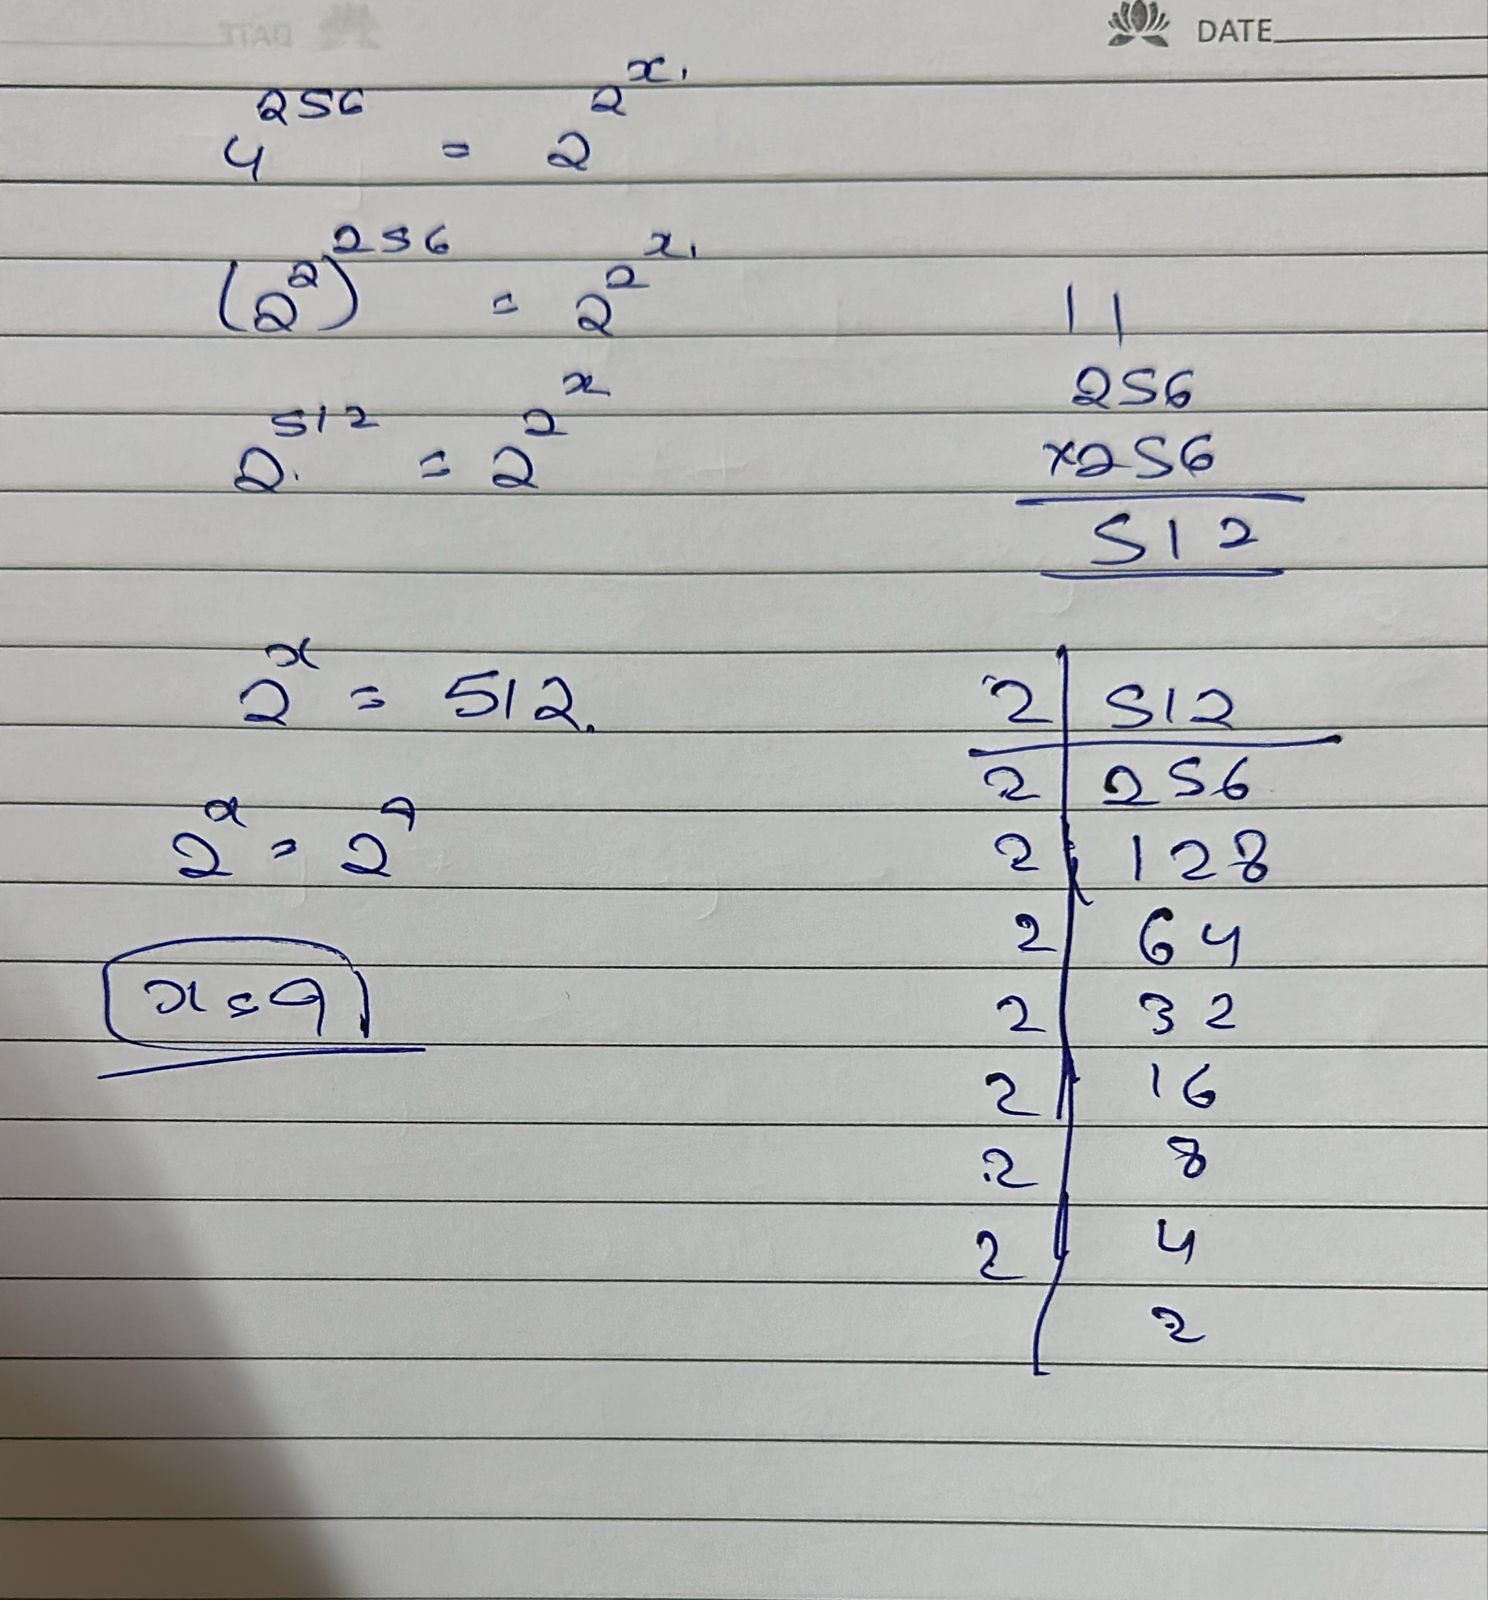 DATE
4^256 = 2^2^x.
(2^2)^256 = 2^2^x.
2.^512 = 2^2^x
11
256
×256
512
2^x = 512.
2^x = 2^9
x = 9
2 | 512
2 | 256
2 | 128
2 | 64
2 | 32
2 | 16
2 | 8
2 | 4
2